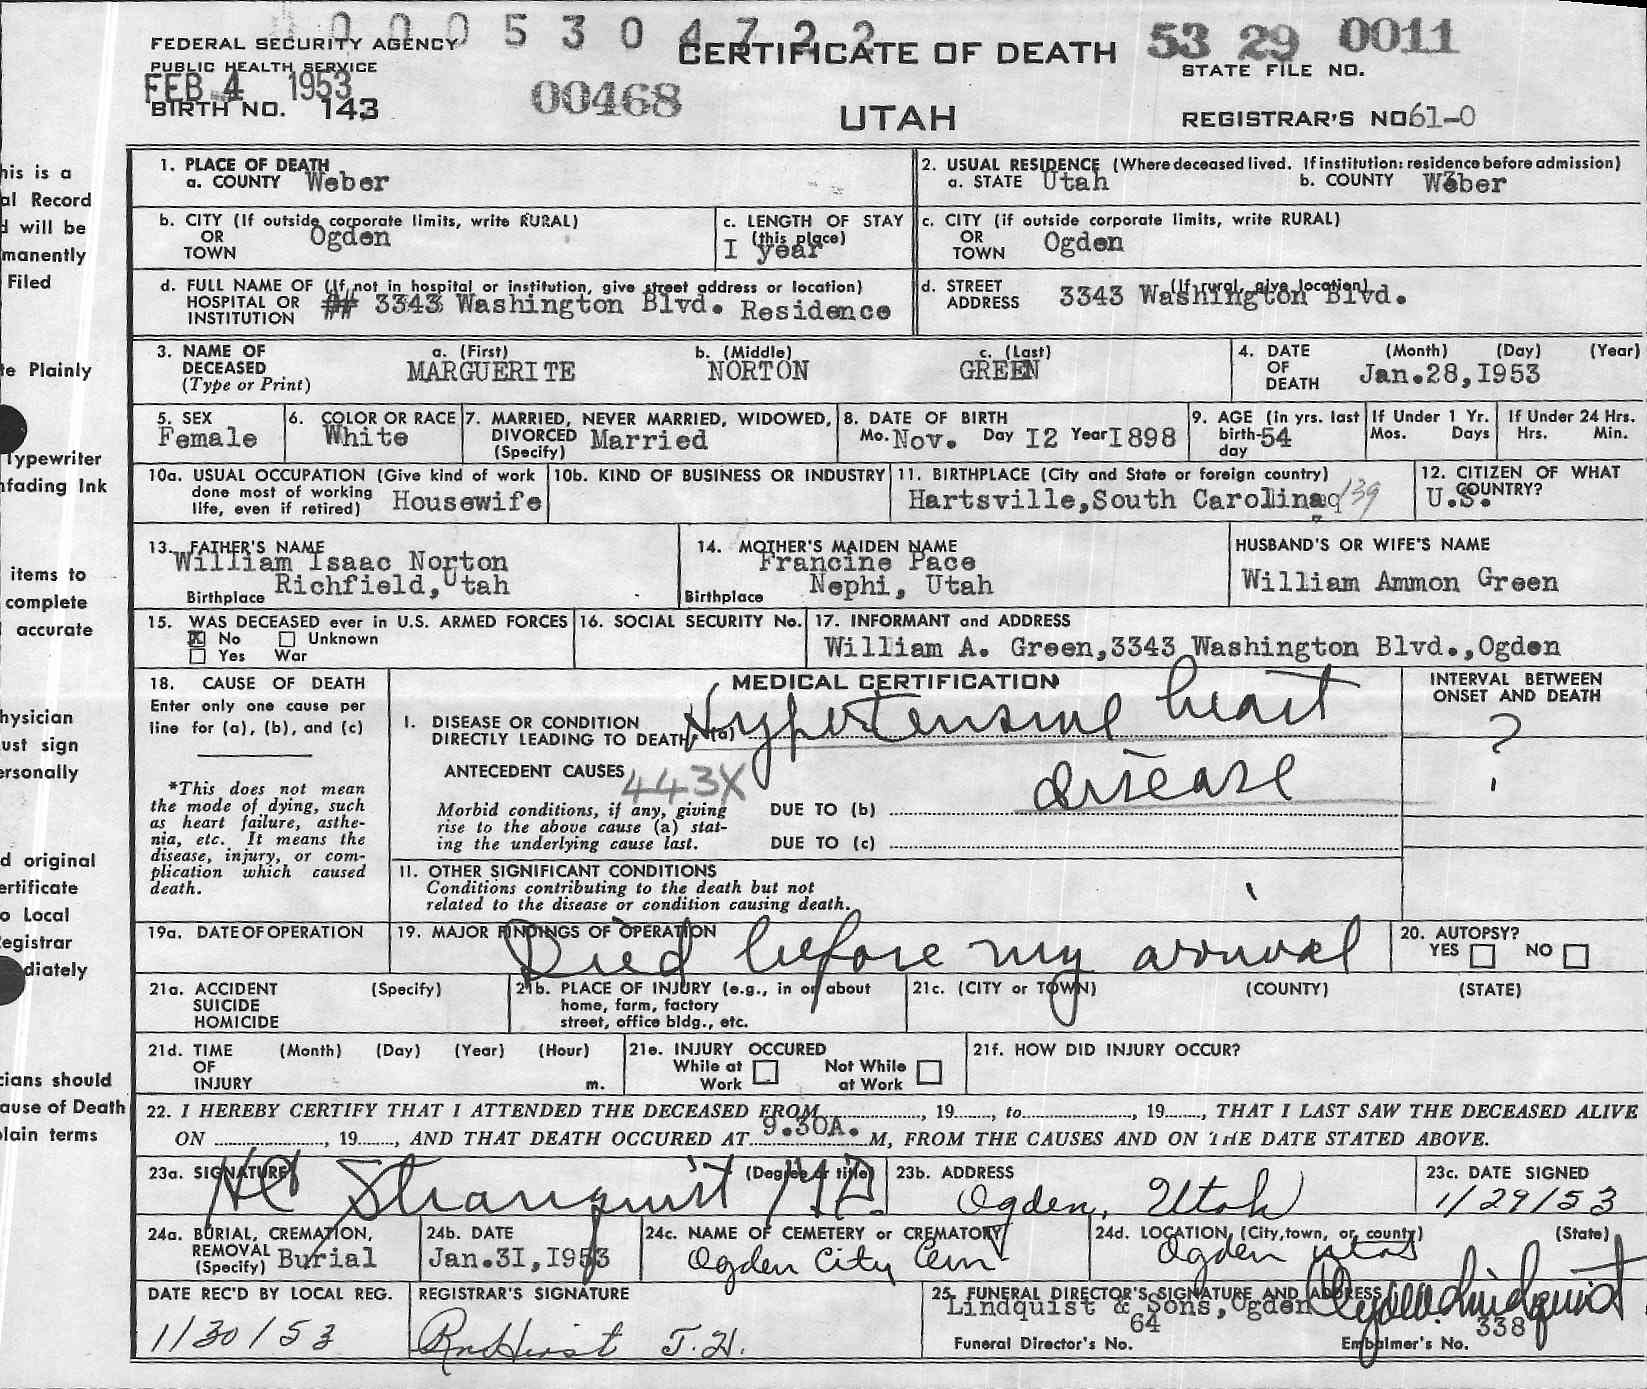 0 0 0 0 5 3 0 4 7 2 2
FEDERAL SECURITY AGENCY
PUBLIC HEALTH SERVICE
FEB 4 1953
BIRTH NO. 143
00468
CERTIFICATE OF DEATH
UTAH
53 29 0011
STATE FILE NO.
REGISTRAR'S NO 61-0
his is a
al Record
d will be
manently
Filed
te Plainly
Typewriter
nfading Ink
items to
complete
accurate
hysician
ust sign
ersonally
d original
ertificate
o Local
egistrar
diately
cians should
ause of Death
plain terms
1. PLACE OF DEATH
a. COUNTY Weber
2. USUAL RESIDENCE (Where deceased lived. If institution: residence before admission)
a. STATE Utah b. COUNTY Weber
b. CITY (If outside corporate limits, write RURAL)
OR
TOWN Ogden
c. LENGTH OF STAY
(this place)
I year
c. CITY (if outside corporate limits, write RURAL)
OR
TOWN Ogden
d. FULL NAME OF (If not in hospital or institution, give street address or location)
HOSPITAL OR
INSTITUTION ## 3343 Washington Blvd. Residence
d. STREET (If rural, give location)
ADDRESS 3343 Washington Blvd.
3. NAME OF
DECEASED
(Type or Print)
a. (First) b. (Middle) c. (Last)
MARGUERITE NORTON GREEN
4. DATE
OF
DEATH
(Month) (Day) (Year)
Jan.28,I953
5. SEX
Female
6. COLOR OR RACE
White
7. MARRIED, NEVER MARRIED, WIDOWED,
DIVORCED Married
(Specify)
8. DATE OF BIRTH
Mo. Nov. Day I2 Year I898
9. AGE (in yrs. last
birth- 54
day
If Under 1 Yr.
Mos. Days
If Under 24 Hrs.
Hrs. Min.
10a. USUAL OCCUPATION (Give kind of work
done most of working
life, even if retired) Housewife
10b. KIND OF BUSINESS OR INDUSTRY
11. BIRTHPLACE (City and State or foreign country)
Hartsville,South Carolina 139
12. CITIZEN OF WHAT
COUNTRY?
U.S.
13. FATHER'S NAME
William Isaac Norton
Birthplace Richfield,Utah
14. MOTHER'S MAIDEN NAME
Francine Pace
Birthplace Nephi, Utah
HUSBAND'S OR WIFE'S NAME
William Ammon Green
15. WAS DECEASED ever in U.S. ARMED FORCES
X No Unknown
Yes War
16. SOCIAL SECURITY No.
17. INFORMANT and ADDRESS
William A. Green,3343 Washington Blvd.,Ogden
18. CAUSE OF DEATH
Enter only one cause per
line for (a), (b), and (c)
*This does not mean
the mode of dying, such
as heart failure, asthe-
nia, etc. It means the
disease, injury, or com-
plication which caused
death.
MEDICAL CERTIFICATION
I. DISEASE OR CONDITION
DIRECTLY LEADING TO DEATH* (a) Hypertensive heart
ANTECEDENT CAUSES 443X disease
Morbid conditions, if any, giving
rise to the above cause (a) stat-
ing the underlying cause last.
DUE TO (b)
DUE TO (c)
INTERVAL BETWEEN
ONSET AND DEATH
?
11. OTHER SIGNIFICANT CONDITIONS
Conditions contributing to the death but not
related to the disease or condition causing death.
19a. DATE OF OPERATION
19. MAJOR FINDINGS OF OPERATION
Died before my arrival
20. AUTOPSY?
YES NO
21a. ACCIDENT (Specify)
SUICIDE
HOMICIDE
21b. PLACE OF INJURY (e.g., in or about
home, farm, factory
street, office bldg., etc.
21c. (CITY or TOWN) (COUNTY) (STATE)
21d. TIME (Month) (Day) (Year) (Hour)
OF
INJURY m.
21e. INJURY OCCURED
While at Not While
Work at Work
21f. HOW DID INJURY OCCUR?
22. I HEREBY CERTIFY THAT I ATTENDED THE DECEASED FROM, 19, to, 19, THAT I LAST SAW THE DECEASED ALIVE
ON, 19, AND THAT DEATH OCCURED AT 9.30A. M, FROM THE CAUSES AND ON THE DATE STATED ABOVE.
23a. SIGNATURE (Degree or title)
HC Stranquist MD.
23b. ADDRESS
Ogden, Utah
23c. DATE SIGNED
1/29/53
24a. BURIAL, CREMATION,
REMOVAL
(Specify) Burial
24b. DATE
Jan.31,1953
24c. NAME OF CEMETERY or CREMATORY
Ogden City Cem
24d. LOCATION (City, town, or county) (State)
Ogden Utah
DATE REC'D BY LOCAL REG.
1/30/53
REGISTRAR'S SIGNATURE
25. FUNERAL DIRECTOR'S SIGNATURE AND ADDRESS
Lindquist & Sons,Ogden
Funeral Director's No. 64
Embalmer's No. 338